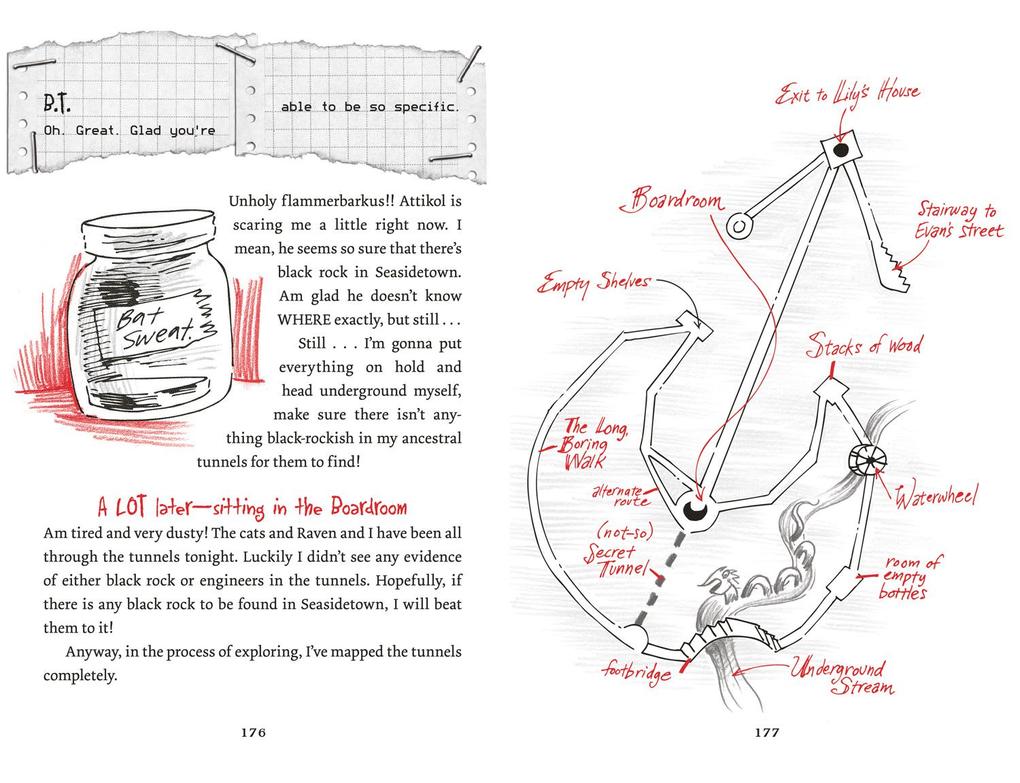 D.T.
Oh. Great. Glad you're
able to be so specific.
Unholy flammerbarkus!! Attikol is
scaring me a little right now. I
mean, he seems so sure that there's
black rock in Seasidetown.
Am glad he doesn't know
WHERE exactly, but still . . .
Still . . . I'm gonna put
everything on hold and
head underground myself,
make sure there isn't any-
thing black-rockish in my ancestral
tunnels for them to find!
Bat
Sweat.
A LOT later—sitting in the Boardroom
Am tired and very dusty! The cats and Raven and I have been all
through the tunnels tonight. Luckily I didn't see any evidence
of either black rock or engineers in the tunnels. Hopefully, if
there is any black rock to be found in Seasidetown, I will beat
them to it!
Anyway, in the process of exploring, I've mapped the tunnels
completely.
176
Exit to Lily's House
Boardroom
Stairway to
Evan's street
Empty Shelves
Stacks of Wood
The Long,
Boring
Walk
alternate
route
Waterwheel
(not-so)
Secret
Tunnel
room of
empty
bottles
footbridge
Underground
Stream
177